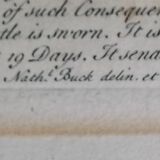 of such Consequen
tle is sworn. It is
19 Days. It send
Nath.l Buck delin. et